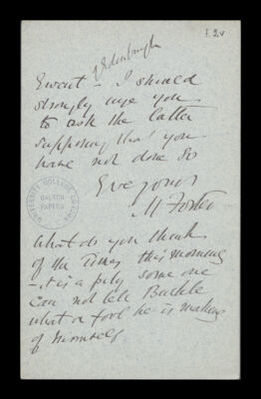 f. 2v
of Edinburgh
Ewart - I should
strongly urge you
to ask the latter
supposing that you
have not done so
Ever yours
M Foster
UNIVERSITY COLLEGE LONDON
GALTON
PAPERS
What do you think
of the Times this morning
- it is a pity some one
can not tell Buckle
what a fool he is making
of himself